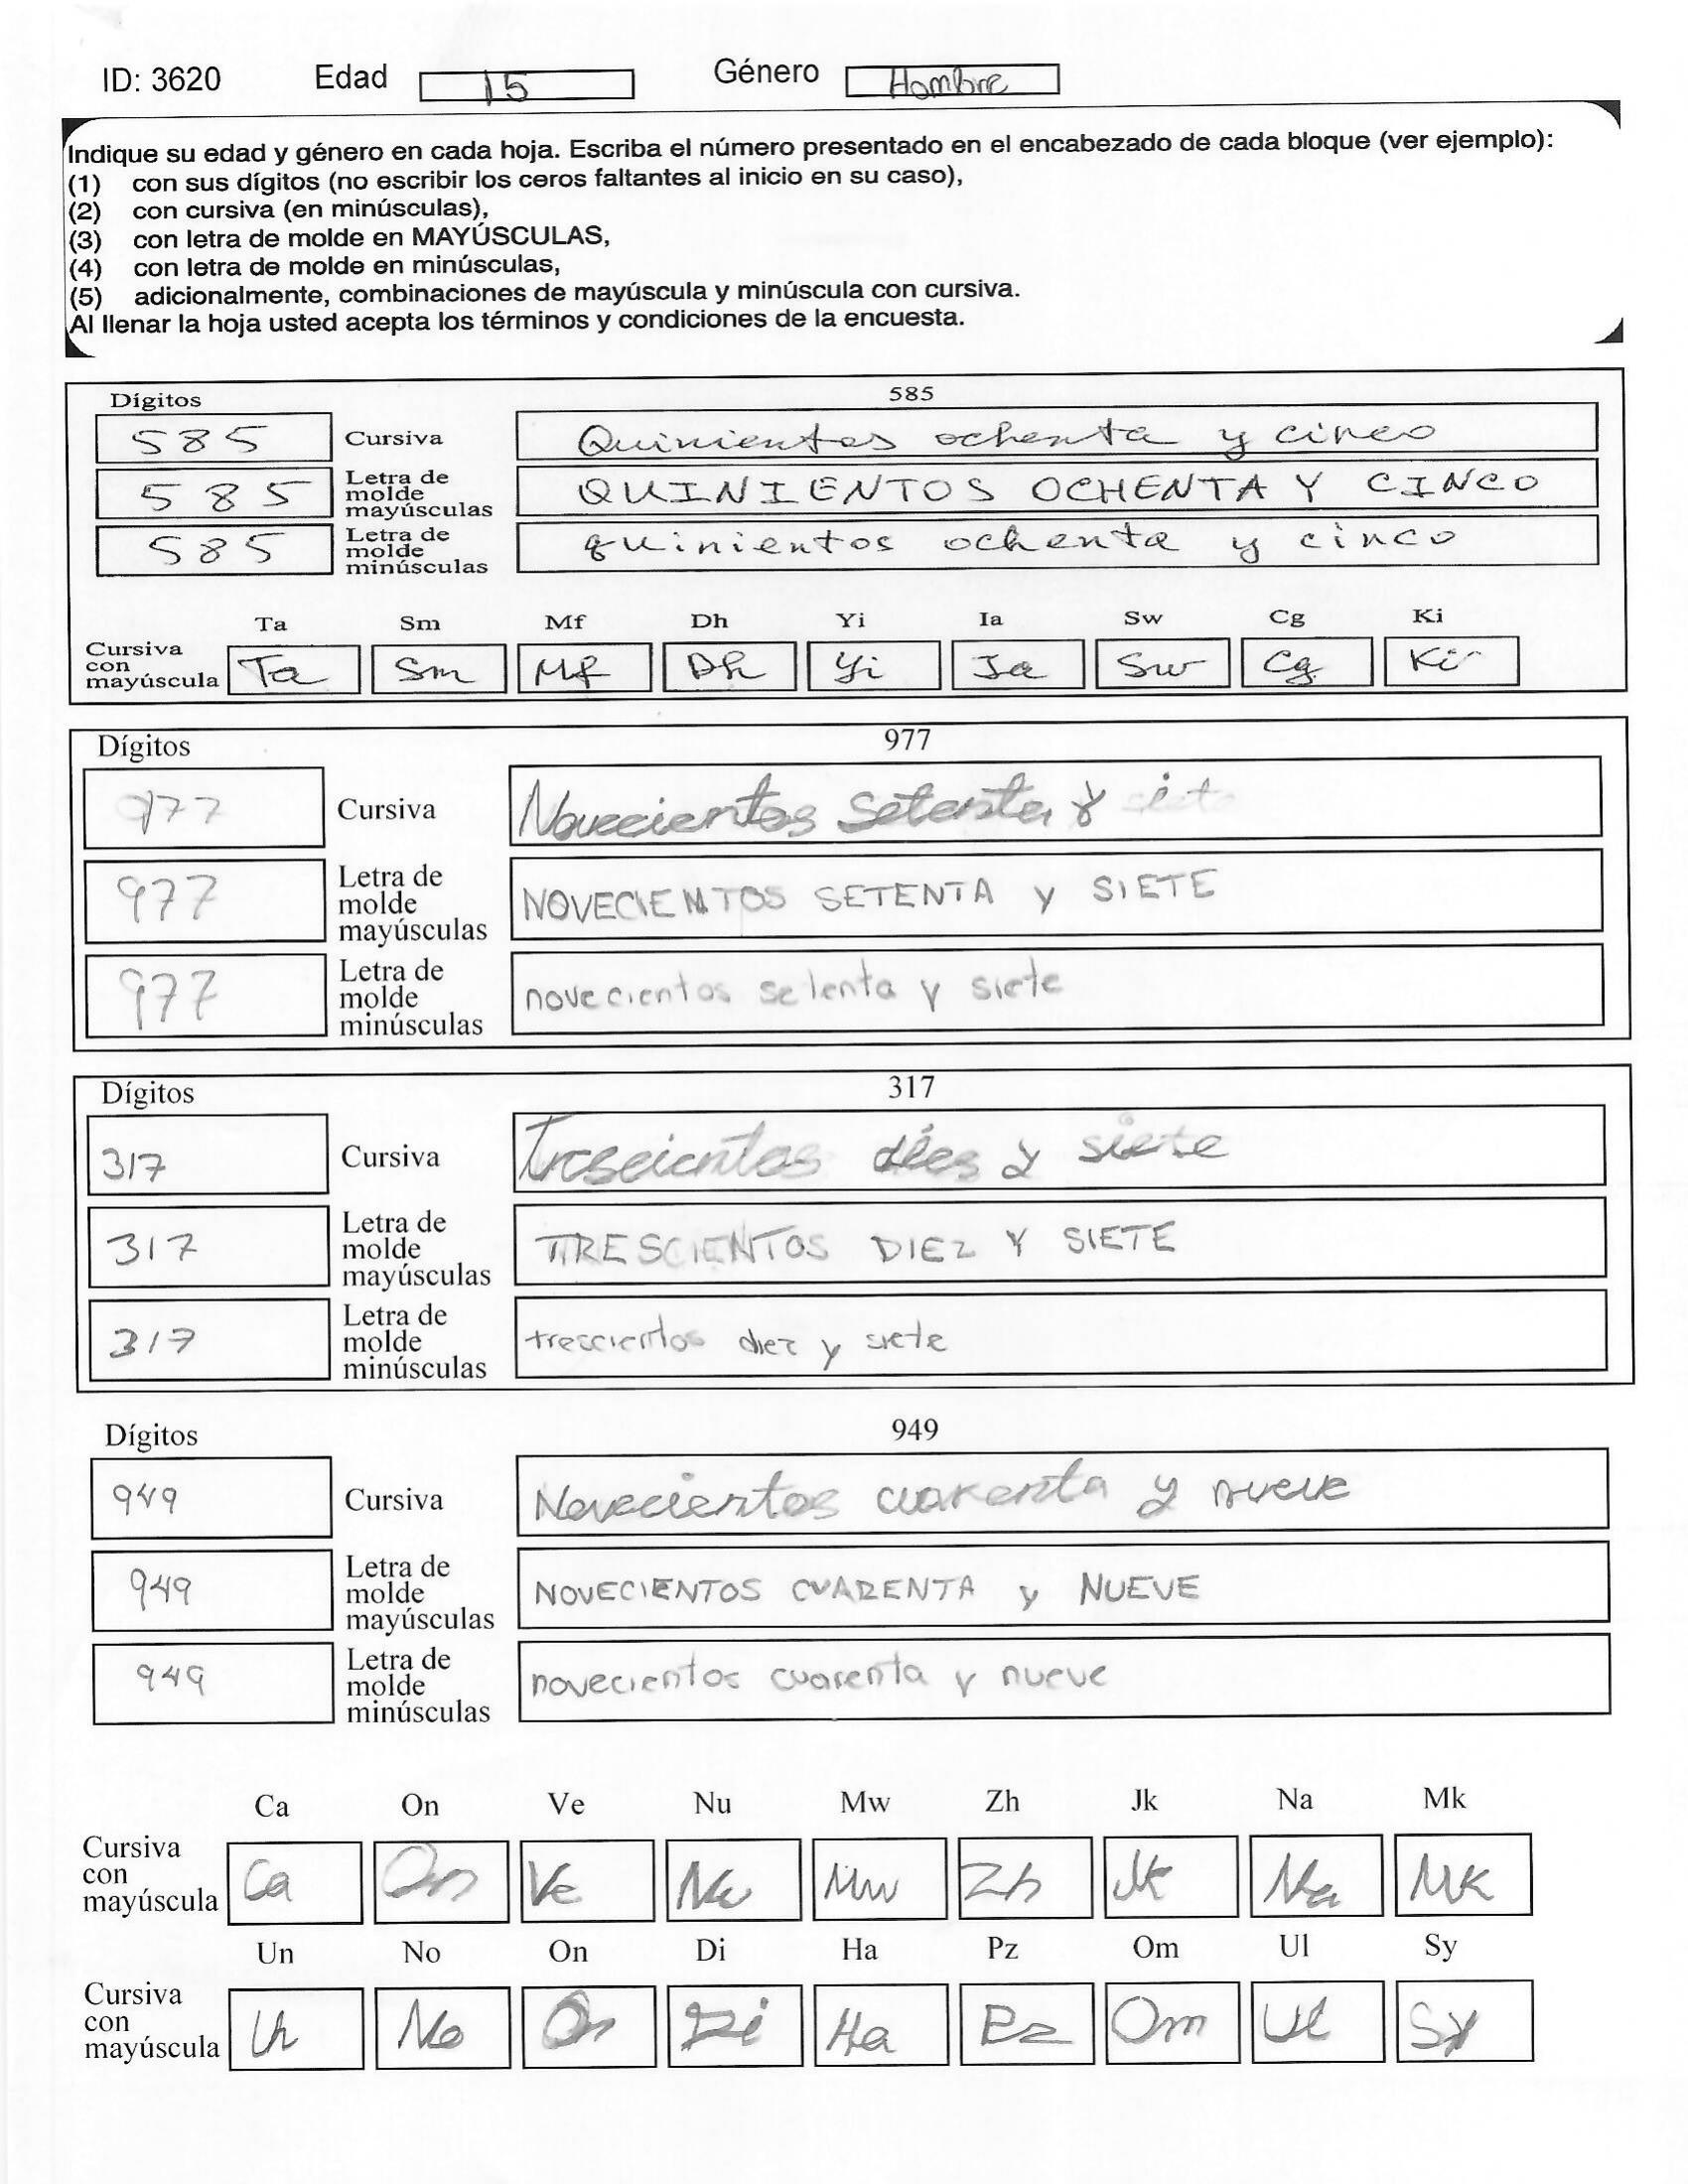 ID: 3620 Edad 15 Género Hombre
Indique su edad y género en cada hoja. Escriba el número presentado en el encabezado de cada bloque (ver ejemplo):
(1) con sus dígitos (no escribir los ceros faltantes al inicio en su caso),
(2) con cursiva (en minúsculas),
(3) con letra de molde en MAYÚSCULAS,
(4) con letra de molde en minúsculas,
(5) adicionalmente, combinaciones de mayúscula y minúscula con cursiva.
Al llenar la hoja usted acepta los términos y condiciones de la encuesta.
Dígitos 585
585 Cursiva Quinientos ochenta y cinco
585 Letra de molde mayúsculas QUINIENTOS OCHENTA Y CINCO
585 Letra de molde minúsculas quinientos ochenta y cinco
Ta Sm Mf Dh Yi Ia Sw Cg Ki
Cursiva con mayúscula Ta Sm Mf Dh Yi Ia Sw Cg Ki
Dígitos 977
977 Cursiva Novecientos setenta y siete
977 Letra de molde mayúsculas NOVECIENTOS SETENTA y SIETE
977 Letra de molde minúsculas novecientos setenta y siete
Dígitos 317
317 Cursiva Trescientos diez y siete
317 Letra de molde mayúsculas TRESCIENTOS DIEZ Y SIETE
317 Letra de molde minúsculas trescientos diez y siete
Dígitos 949
949 Cursiva Novecientos cuarenta y nueve
949 Letra de molde mayúsculas NOVECIENTOS CUARENTA y NUEVE
949 Letra de molde minúsculas novecientos cuarenta y nueve
Ca On Ve Nu Mw Zh Jk Na Mk
Cursiva con mayúscula Ca On Ve Nu Mw Zh Jk Na Mk
Un No On Di Ha Pz Om Ul Sy
Cursiva con mayúscula Un No On Di Ha Pz Om Ul Sy